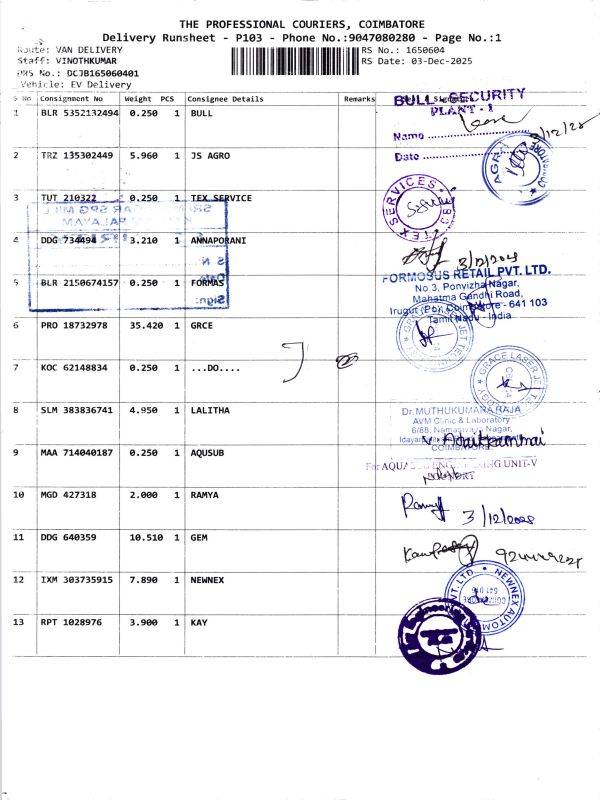 THE PROFESSIONAL COURIERS, COIMBATORE
Delivery Runsheet - P103 - Phone No.:9047080280 - Page No.:1
Route: VAN DELIVERY
RS No.: 1650604
Staff: VINOTHKUMAR
RS Date: 03-Dec-2025
DRS No.: DCJB165060401
Vehicle: EV Delivery
S No Consignment No Weight PCS Consignee Details Remarks
1 BLR 5352132494 0.250 1 BULL
BULL SECURITY
PLANT - 1
Name
Date
2 TRZ 135302449 5.960 1 JS AGRO
AGRA
3 TUT 210322 0.250 1 TEX SERVICE
TEX SERVICES
4 DDG 734494 3.210 1 ANNAPORANI
5 BLR 2150674157 0.250 1 FORMAS
FORMOSUS RETAIL PVT. LTD.
No.3, Ponvizha Nagar,
Mahatma Gandhi Road,
Irugur (Po), Coimbatore - 641 103
Tamil Nadu - India
6 PRO 18732978 35.420 1 GRCE
7 KOC 62148834 0.250 1 ...DO....
GRACE LASER JET
8 SLM 383836741 4.950 1 LALITHA
Dr. MUTHUKUMARA RAJA
AVM Clinic & Laboratory
6/88, Namasivaya Nagar,
COIMBATORE
9 MAA 714040187 0.250 1 AQUSUB
For AQUASUB ENGINEERING UNIT-V
10 MGD 427318 2.000 1 RAMYA
Ramya 3/12/2025
11 DDG 640359 10.510 1 GEM
12 IXM 303735915 7.890 1 NEWNEX
NEWNEX
13 RPT 1028976 3.900 1 KAY